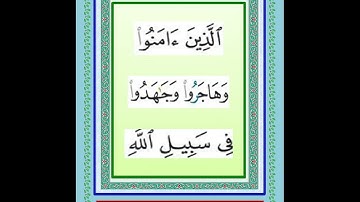 ٱلَّذِينَ ءَامَنُوا۟
وَهَاجَرُوا۟ وَجَـٰهَدُوا۟
فِى سَبِيلِ ٱللَّهِ